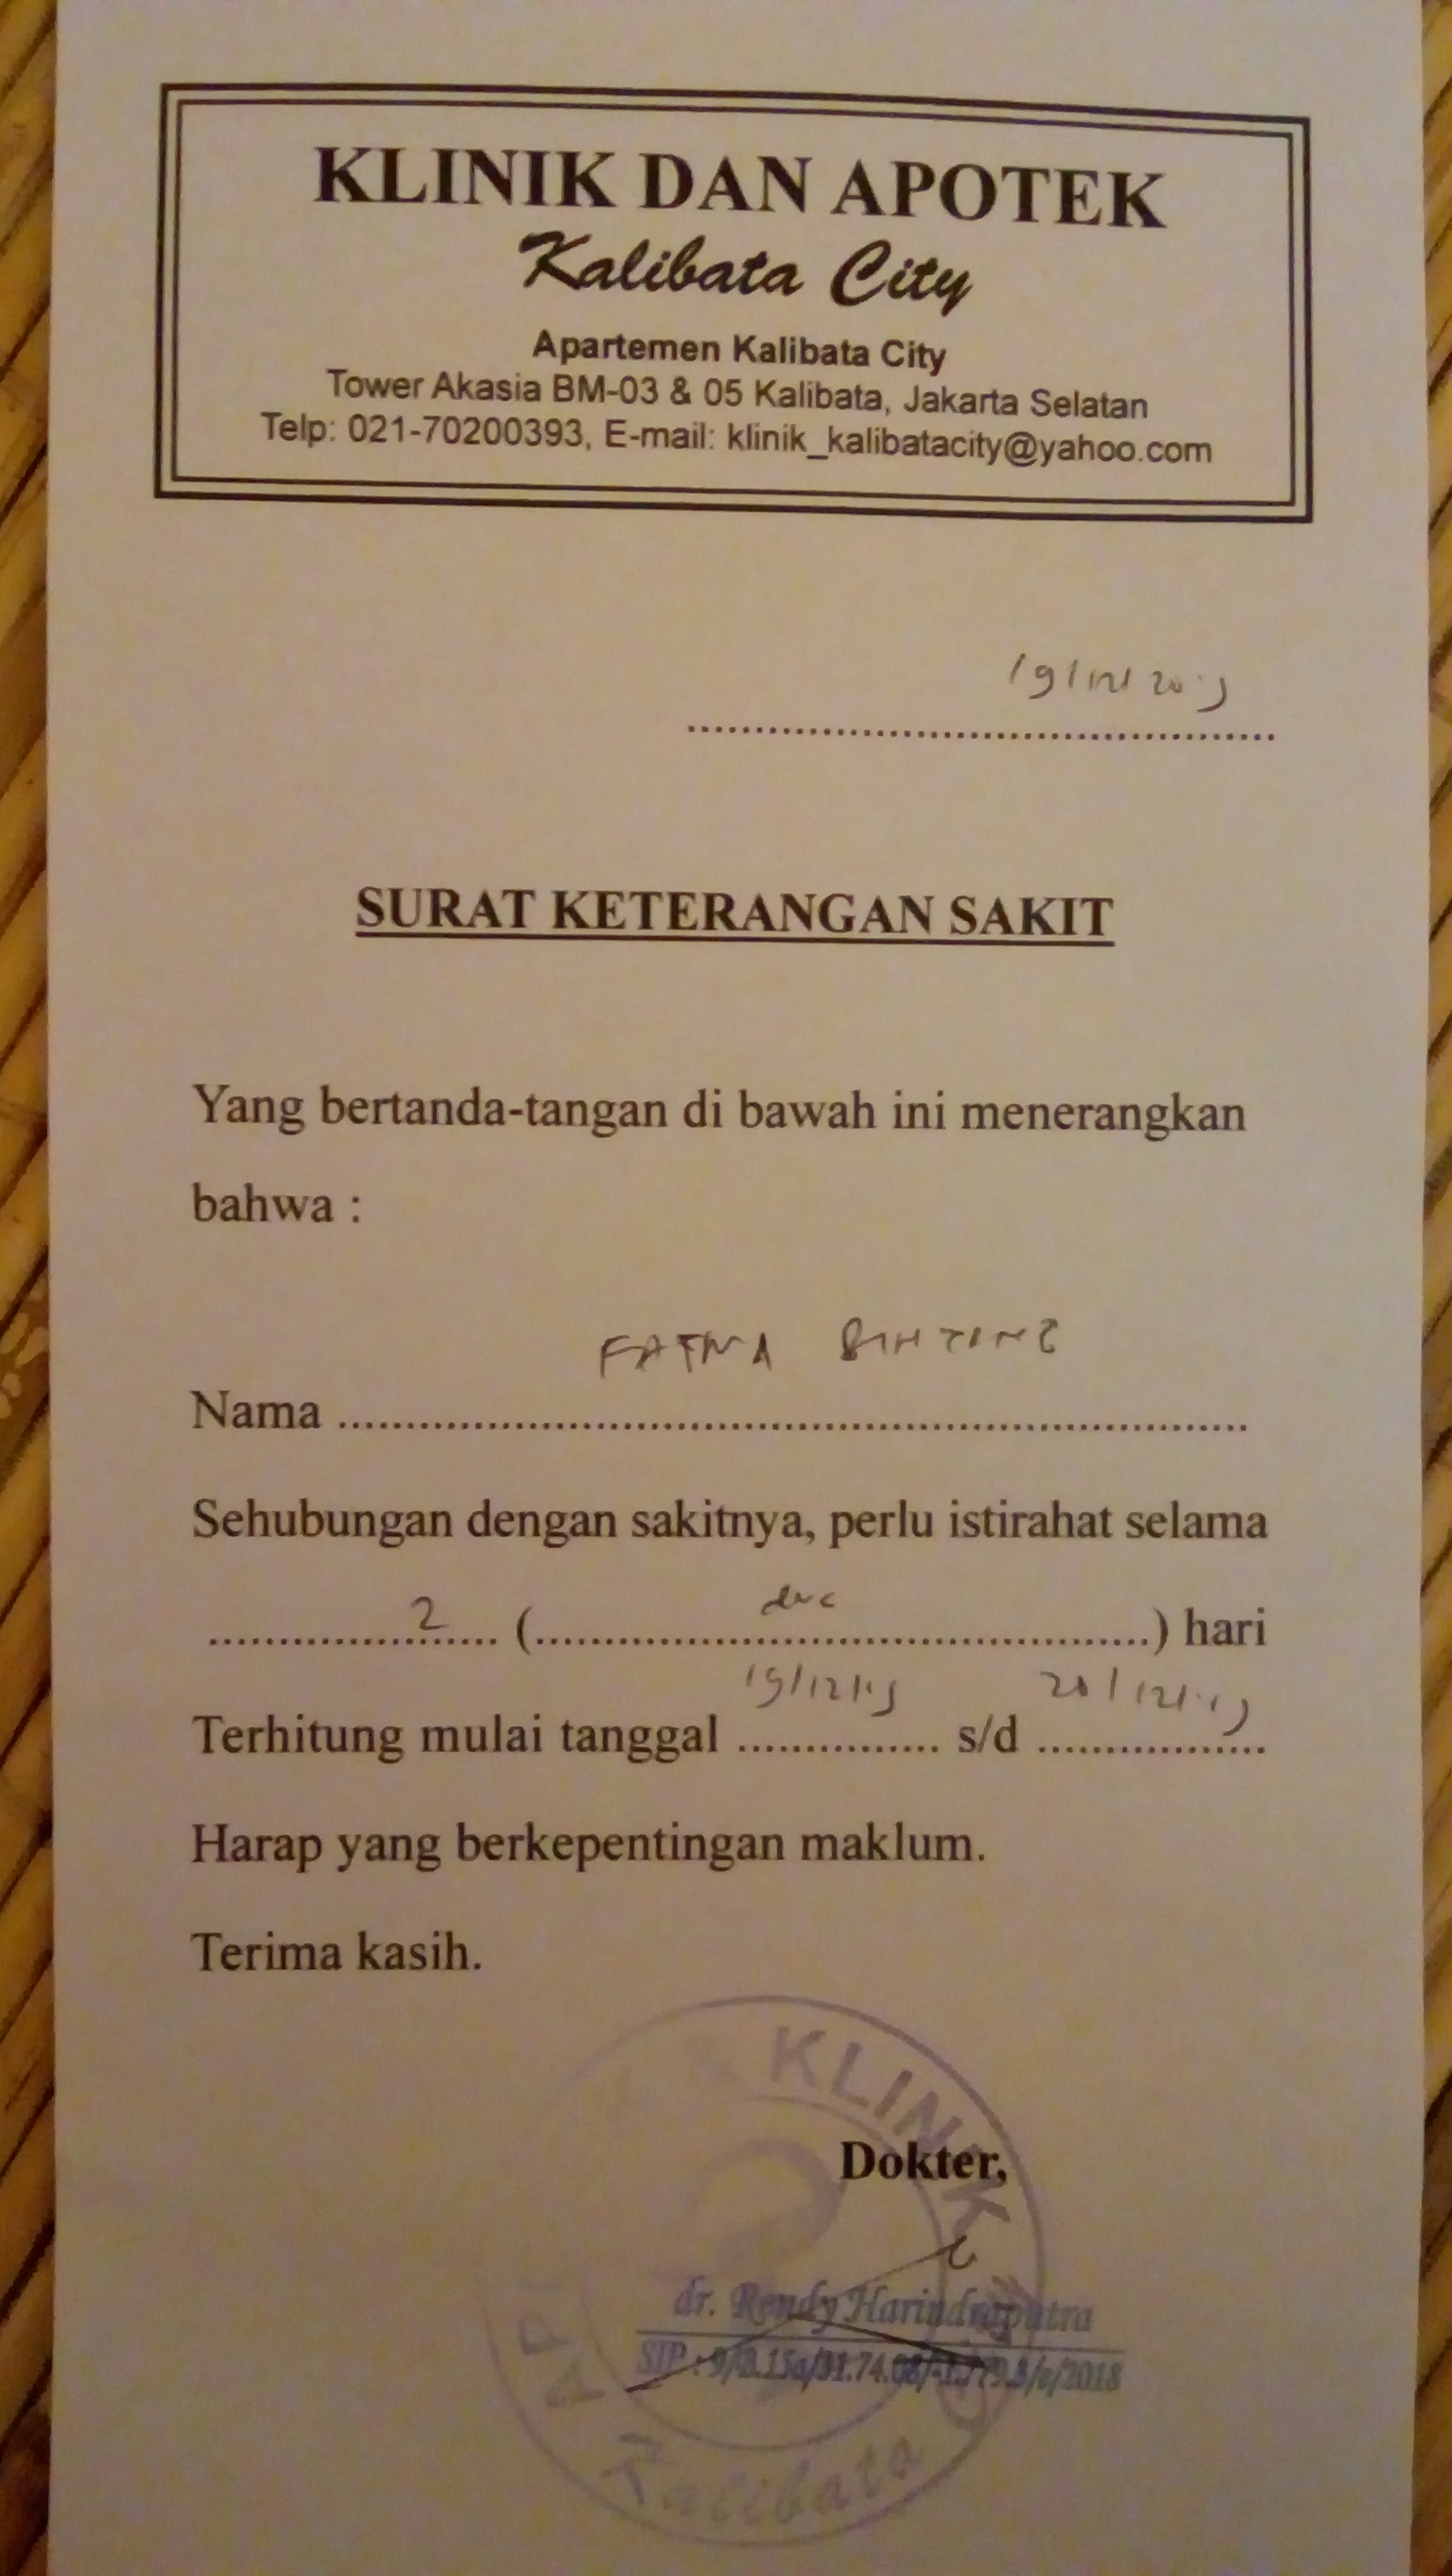 KLINIK DAN APOTEK
Kalibata City
Apartemen Kalibata City
Tower Akasia BM-03 & 05 Kalibata, Jakarta Selatan
Telp: 021-70200393, E-mail: klinik_kalibatacity@yahoo.com
19/12/2019
SURAT KETERANGAN SAKIT
Yang bertanda-tangan di bawah ini menerangkan
bahwa :
FATMA BINTANG
Nama
Sehubungan dengan sakitnya, perlu istirahat selama
2 (dua) hari
Terhitung mulai tanggal 19/12/19 s/d 20/12/19
Harap yang berkepentingan maklum.
Terima kasih.
& KLINIK
Dokter,
dr. Rendy Harindraputra
SIP :
Kalibata